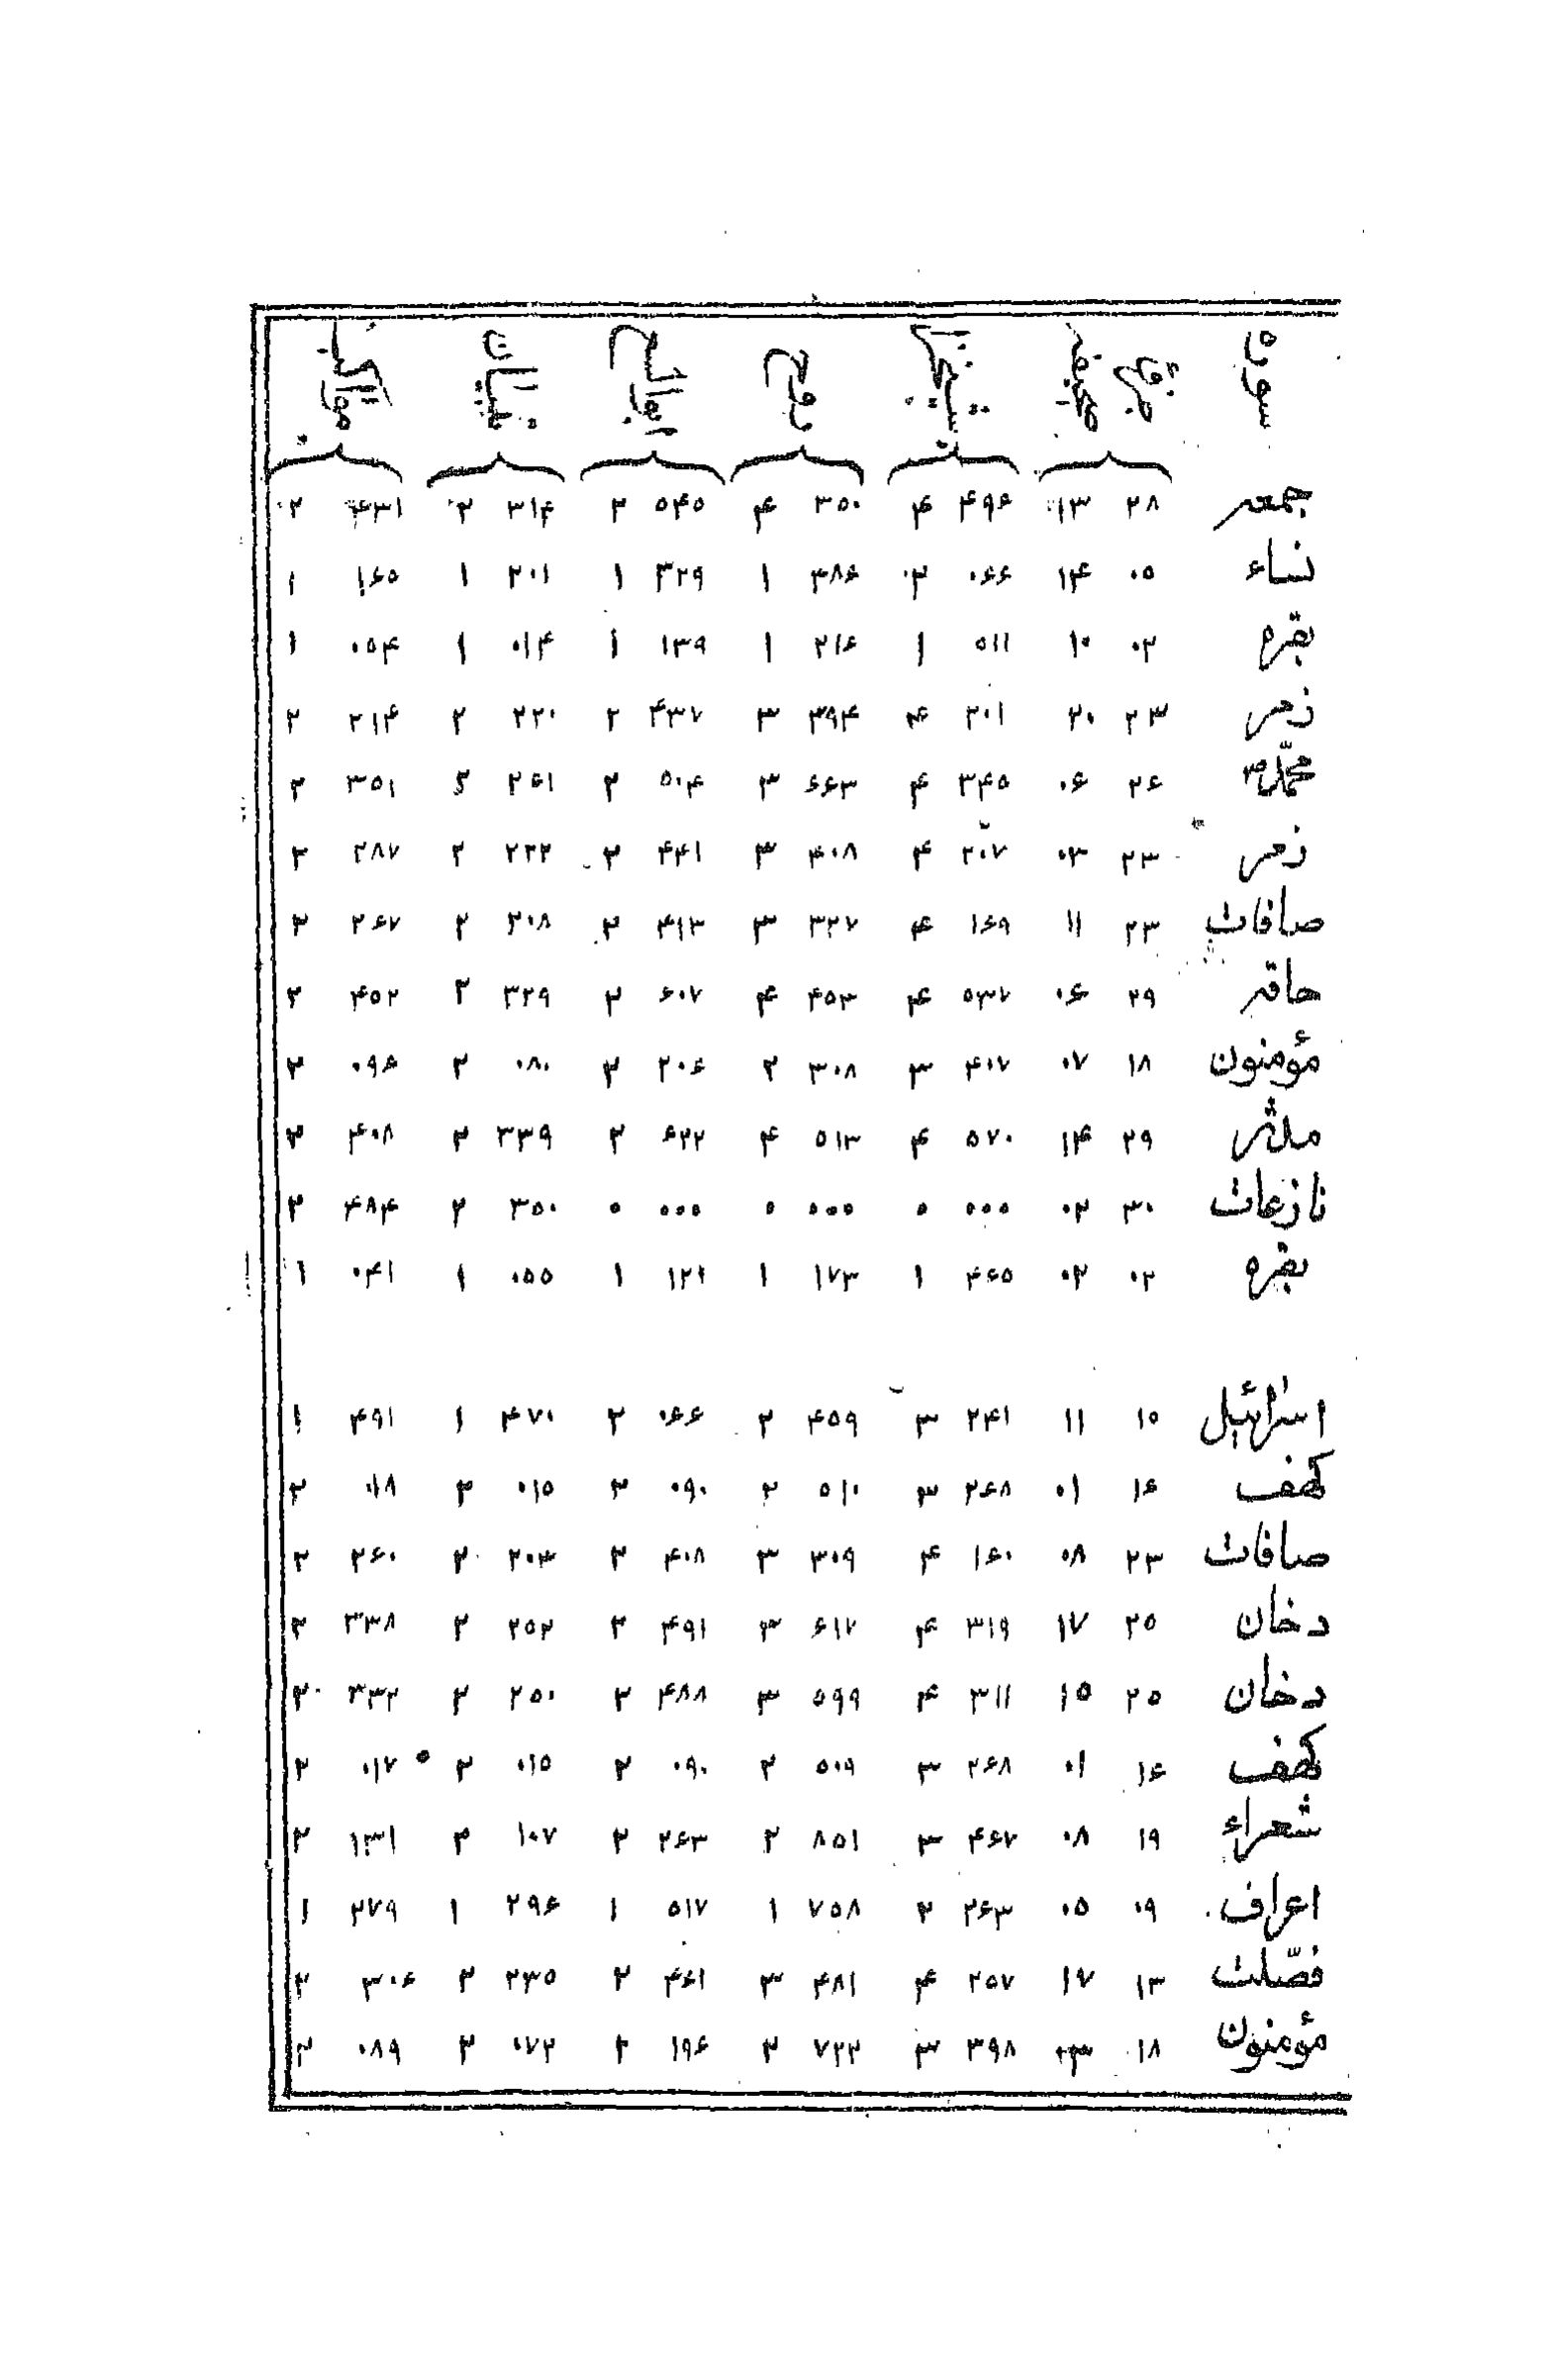 سوره جزؤ صفحه روح
جمعه ۲۸ ۱۳ ۴۹۶ ۴ ۳۵۰ ۴ ۵۴۵ ۲ ۳۱۴ ۲ ۴۳۱ ۲
نساء ۰۵ ۱۴ ۰۶۶ ۲ ۳۸۶ ۱ ۳۲۹ ۱ ۲۰۱ ۱ ۱۶۵ ۱
بقره ۰۲ ۱۰ ۵۱۱ ۱ ۲۱۶ ۱ ۱۳۹ ۱ ۰۱۴ ۱ ۰۵۴ ۱
زمر ۲۳ ۲۰ ۲۰۱ ۴ ۳۹۴ ۳ ۴۳۷ ۲ ۲۲۰ ۲ ۲۱۴ ۲
محمّد ص ۲۶ ۰۶ ۳۴۵ ۴ ۶۶۳ ۳ ۵۰۴ ۲ ۲۶۱ ۲ ۳۵۱ ۲
زمر ۲۳ ۰۳ ۲۰۷ ۴ ۴۰۸ ۳ ۴۴۱ ۲ ۲۲۲ ۲ ۲۸۷ ۲
صافات ۲۳ ۱۱ ۱۶۹ ۴ ۳۲۷ ۳ ۴۱۳ ۲ ۲۰۸ ۲ ۲۶۷ ۲
حاقه ۲۹ ۰۶ ۵۳۷ ۴ ۴۵۳ ۴ ۶۰۷ ۲ ۳۲۹ ۲ ۴۵۲ ۲
مؤمنون ۱۸ ۰۷ ۴۰۷ ۳ ۳۰۸ ۲ ۲۰۶ ۲ ۰۸۰ ۲ ۰۹۶ ۲
مدثر ۲۹ ۱۴ ۵۷۰ ۴ ۵۱۳ ۴ ۶۲۲ ۲ ۳۳۹ ۲ ۴۰۸ ۲
نازعات ۳۰ ۰۲ ۰۰۰ ۰ ۰۰۰ ۰ ۰۰۰ ۰ ۳۵۰ ۲ ۴۸۴ ۲
بقره ۰۲ ۰۲ ۴۶۵ ۱ ۱۷۳ ۱ ۱۲۱ ۱ ۰۵۵ ۱ ۰۴۱ ۱
اسرائیل ۱۵ ۱۱ ۲۴۱ ۳ ۴۵۹ ۲ ۰۶۶ ۲ ۴۷۰ ۱ ۴۹۱ ۱
کهف ۱۶ ۰۱ ۲۶۸ ۳ ۵۱۰ ۲ ۰۹۰ ۲ ۰۱۵ ۲ ۰۱۸ ۲
صافات ۲۳ ۰۸ ۱۶۰ ۴ ۳۰۹ ۳ ۴۰۸ ۲ ۲۰۳ ۲ ۲۶۰ ۲
دخان ۲۵ ۱۷ ۳۱۹ ۴ ۶۱۷ ۳ ۴۹۱ ۲ ۲۵۲ ۲ ۳۳۸ ۲
دخان ۲۵ ۱۵ ۳۱۱ ۴ ۵۹۹ ۳ ۴۸۸ ۲ ۲۵۰ ۲ ۳۳۲ ۲
کهف ۱۶ ۰۱ ۲۶۸ ۳ ۵۰۹ ۲ ۰۹۰ ۲ ۰۱۵ ۲ ۰۱۷ ۲
شعراء ۱۹ ۰۸ ۴۶۷ ۳ ۸۵۱ ۲ ۲۶۳ ۲ ۱۰۷ ۲ ۱۳۱ ۲
اعراف ۰۹ ۰۵ ۲۶۳ ۲ ۷۵۸ ۱ ۵۱۷ ۱ ۲۹۶ ۱ ۲۷۹ ۱
فصّلت ۱۳ ۱۷ ۲۵۷ ۴ ۴۸۱ ۳ ۴۶۱ ۲ ۲۳۵ ۲ ۳۰۶ ۲
مؤمنون ۱۸ ۰۳ ۳۹۸ ۳ ۷۲۲ ۲ ۱۹۶ ۲ ۰۷۲ ۲ ۰۸۹ ۲